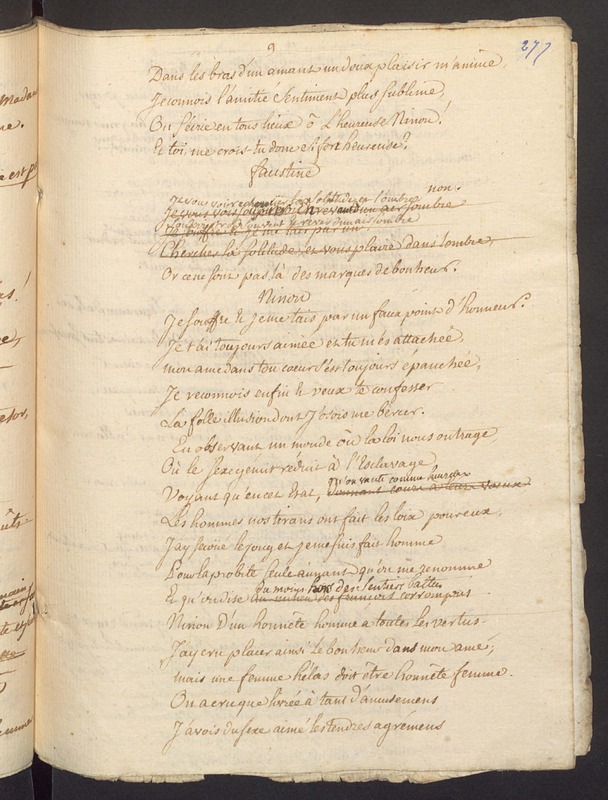 9
277
Dans les bras d'un amant un doux plaisir m'anime,
Je connois l'amitié sentiment plus sublime,
On s'écrie en tous lieux ô L'heureuse Ninon!
Et toi, me crois-tu donc si fort heureuse?
faustine
non.
Je vous vois chercher la solitude et l'ombre
Je vous vois
Chercher la solitude, et vous plaire dans l'ombre,
Or ce ne sont pas là des marques de bonheur.
Ninon
Je souffre et je me tais par un faux point d'honneur.
Je t'ai toujours aimée et tu m'és attachée,
mon ame dans ton coeur s'est toujours épanchée,
Je reconnois enfin et veux te confesser
La folle illusion dont J'osois me bercer.
En observant un monde où la loi nous outrage,
Où le sexe gémit réduit à l'Esclavage
qu'on vante comme heureux
Voyant qu'en cet Etat,
Les hommes nos tirans ont fait les loix pour eux,
J'ay secoué le joug et je me suis fait homme
Pour la probité seule aimant qu'on me renomme
du moins hors des sentiers battus
Et qu'on dise au milieu des femmes corrompus
Ninon D'un honnête homme a toutes les vertus.
J'ay cru placer ainsi le bonheur dans mon ame;
mais une femme helas doit etre honnête femme.
On a cru que livrée à tant d'amusemens
J'avois du sexe aimé les tendres agrémens